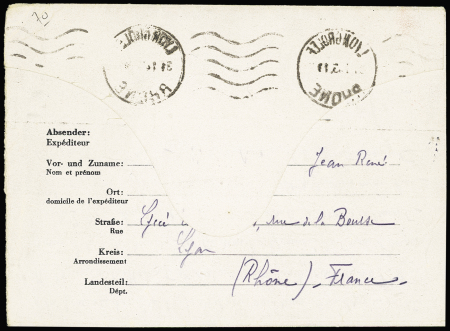 Absender:
Expéditeur
Vor- und Zuname: Jean René
Nom et prénom
Ort:
domicile de l'expéditeur
Straße: rue de la Bourse
Rue
Kreis: Lyon
Arrondissement
Landesteil: (Rhône) - France -
Dépt.